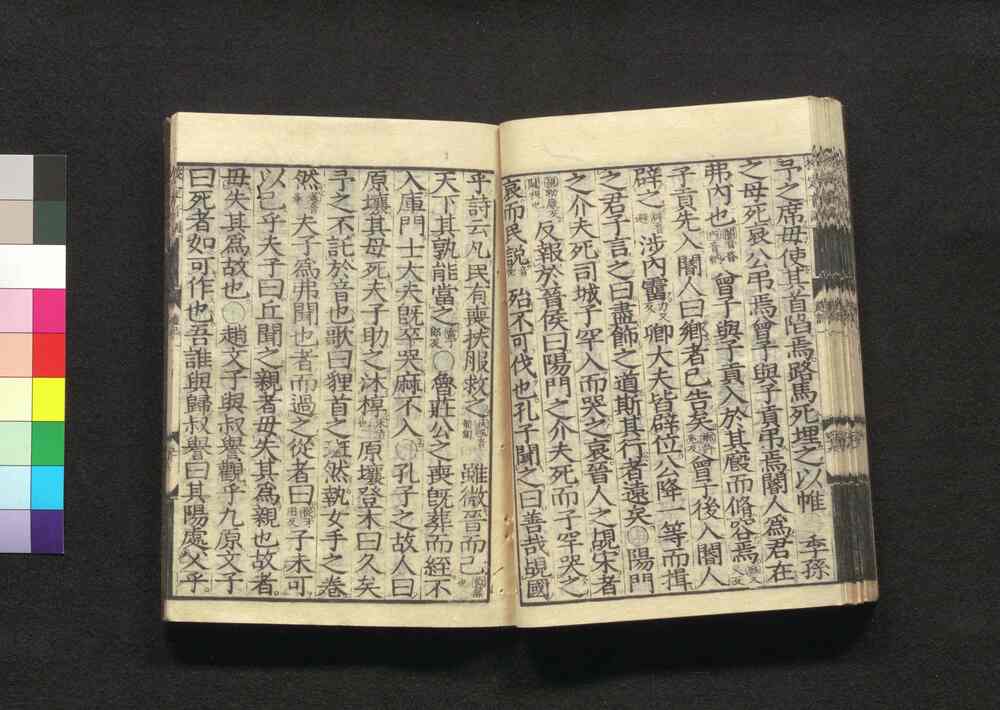 予之席毋使其首陷焉路馬死埋之以帷 季孫
之母死哀公弔焉曾子與子貢弔焉閽人爲君在
弗内也 曾子與子貢入於其廄而脩容焉
子貢先入閽人曰鄉者已告矣 曾子後入閽人
辟之 涉内霤 卿大夫皆辟位公降一等而揖
之君子言之曰盡飾之道斯其行者遠矣○陽門
之介夫死司城子罕入而哭之哀晉人之覘宋者
反報於晉侯曰陽門之介夫死而子罕哭之
哀而民說 殆不可伐也孔子聞之曰善哉覘國
乎詩云凡民有喪扶服救之 雖微晉而已
天下其孰能當之 ○魯莊公之喪旣葬而絰不
入庫門士大夫旣卒哭麻不入○孔子之故人曰
原壤其母死夫子助之沐椁 原壤登木曰久矣
予之不託於音也歌曰貍首之班然執女手之卷
然 夫子爲弗聞也者而過之從者曰 子未可
以已乎夫子曰丘聞之親者毋失其爲親也故者
毋失其爲故也○趙文子與叔譽觀乎九原文子
曰死者如可作也吾誰與歸叔譽曰其陽處父乎